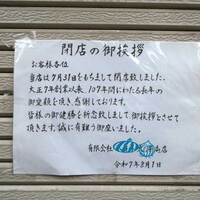 閉店の御挨拶
お客様各位
当店は7月31日をもちまして閉店致しました。
大正7年創業以来、107年間にわたる長年の
御愛顧を頂き感謝しております。
皆様の御健勝を祈念致しまして御挨拶とさせて
頂きます。誠に有難う御座いました。
有限会社 商店
令和7年8月1日